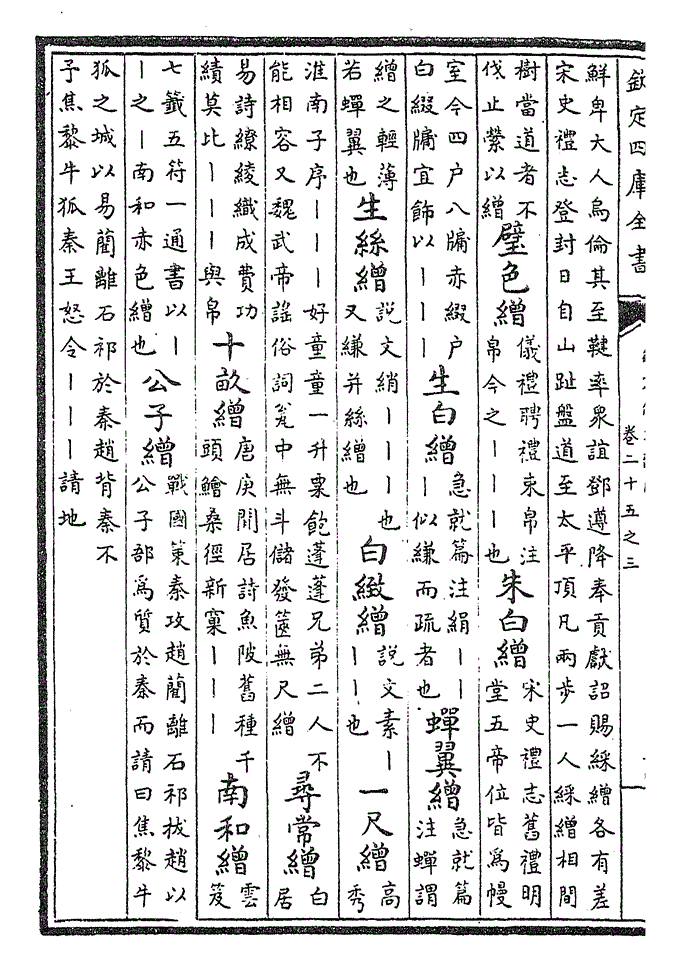 欽定四庫全書
卷二十五之三
鮮卑大人烏倫其至鞬率衆誼鄧遵降奉貢獻詔賜綵繒各有差
宋史禮志登封日自山趾盤道至太平頂凡兩步一人綵繒相間
樹當道者不
伐止縈以繒
璧色繒
儀禮聘禮束帛注
帛今之丨丨丨也
朱白繒
宋史禮志舊禮明
堂五帝位皆爲幔
室今四戶八牖赤綴戶
白綴牖宜飾以丨丨丨
生白繒
急就篇注絹丨丨
丨似縑而疏者也
蟬翼繒
急就篇
注蟬謂
繒之輕薄
若蟬翼也
生絲繒
說文綃丨丨丨也
又縑并絲繒也
白緻繒
說文素丨
丨丨也
一尺繒
高
秀
淮南子序丨丨丨好童童一升粟飽蓬蓬兄弟二人不
能相容又魏武帝謡俗詞瓮中無斗儲發篋無尺繒
尋常繒
白
居
易詩繚綾織成費功
績莫比丨丨丨與帛
十畝繒
唐庚閒居詩魚陂舊種千
頭鱠桑徑新窠丨丨丨
南和繒
雲
笈
七籤五符一通書以丨
丨之丨南和赤色繒也
公子繒
戰國策秦攻趙藺離石祁拔趙以
公子郚爲質於秦而請曰焦黎牛
狐之城以易藺離石祁於秦趙背秦不
子焦黎牛狐秦王怒令丨丨丨請地